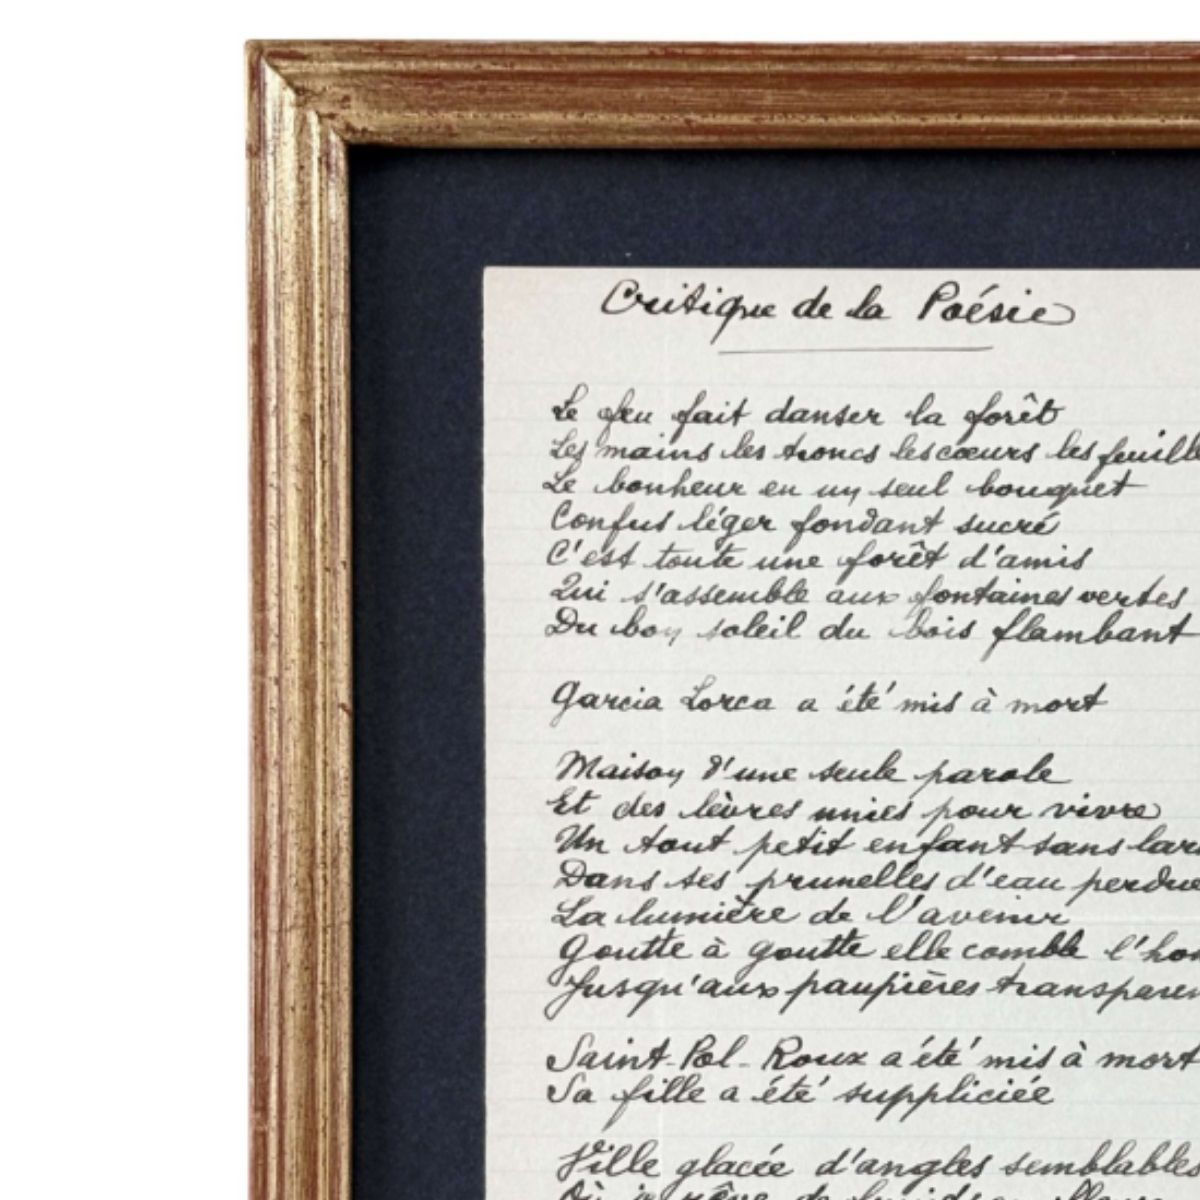 Critique de la Poésie
Le feu fait danser la forêt
Les mains les troncs les cœurs les feuille
Le bonheur en un seul bouquet
Confus léger fondant sucré
C'est toute une forêt d'amis
Qui s'assemble aux fontaines vertes
Du bon soleil du bois flambant
Garcia Lorca a été mis à mort
Maison d'une seule parole
Et des lèvres unies pour vivre
Un tout petit enfant sans lar
Dans ses prunelles d'eau perdue
La lumière de l'avenir
Goutte à goutte elle comble l'ho
Jusqu'aux paupières transparen
Saint-Pol-Roux a été mis à mort
Sa fille a été suppliciée
Ville glacée d'angles semblables
Où je rêve de fruits en